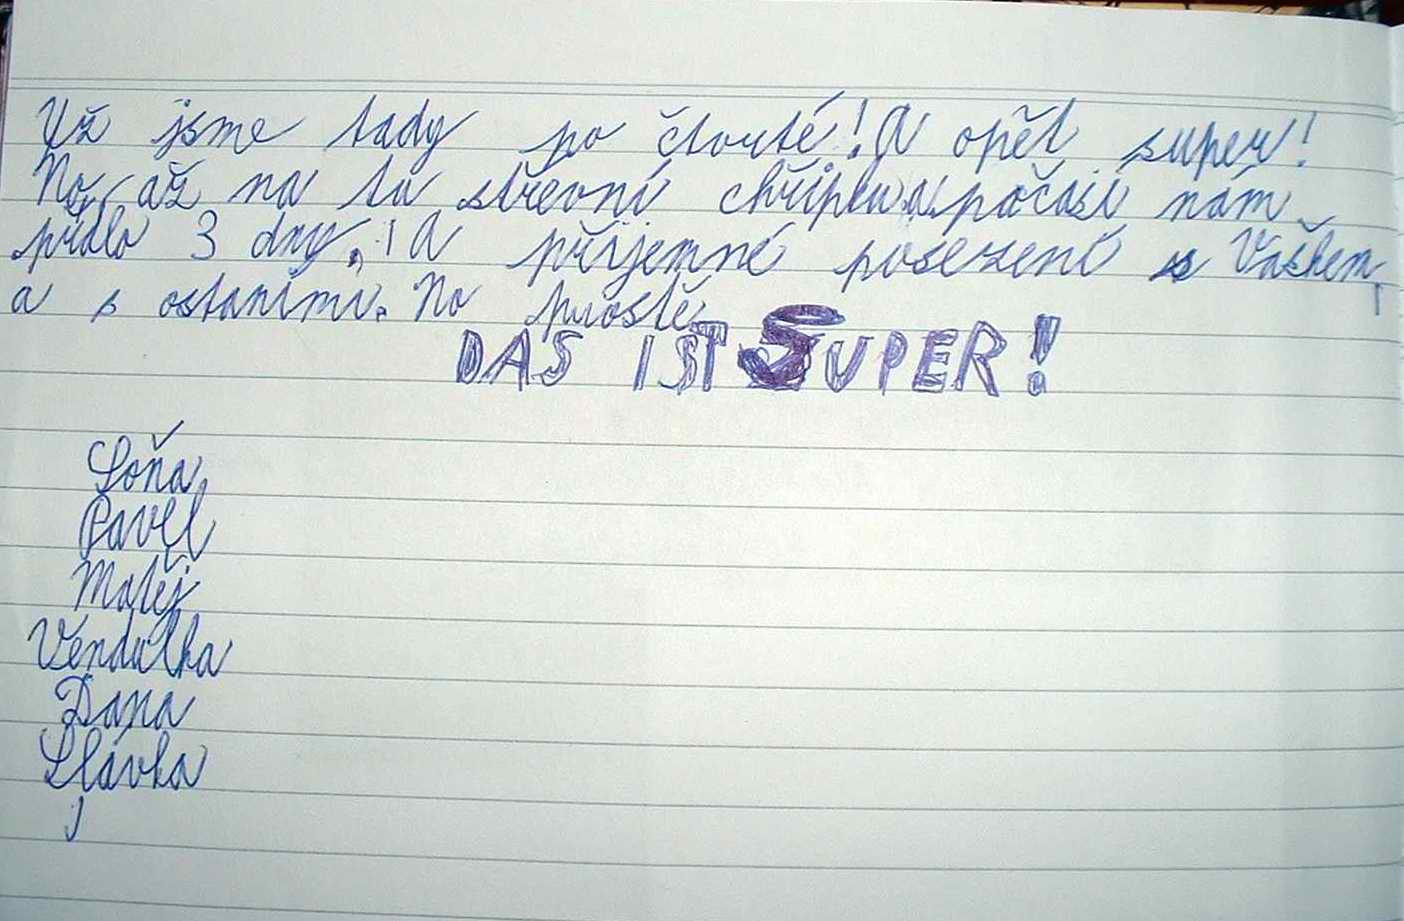 Už jsme tady po čtvrté! A opět super!
No, až na tu střevní chřipku a počasí nám
přálo 3 dny. A příjemné posezení s Vaškem
a s ostaními. No prostě
DAS IST SUPER!
Soňa,
Pavel
Matěj
Vendulka
Dana
Slávka